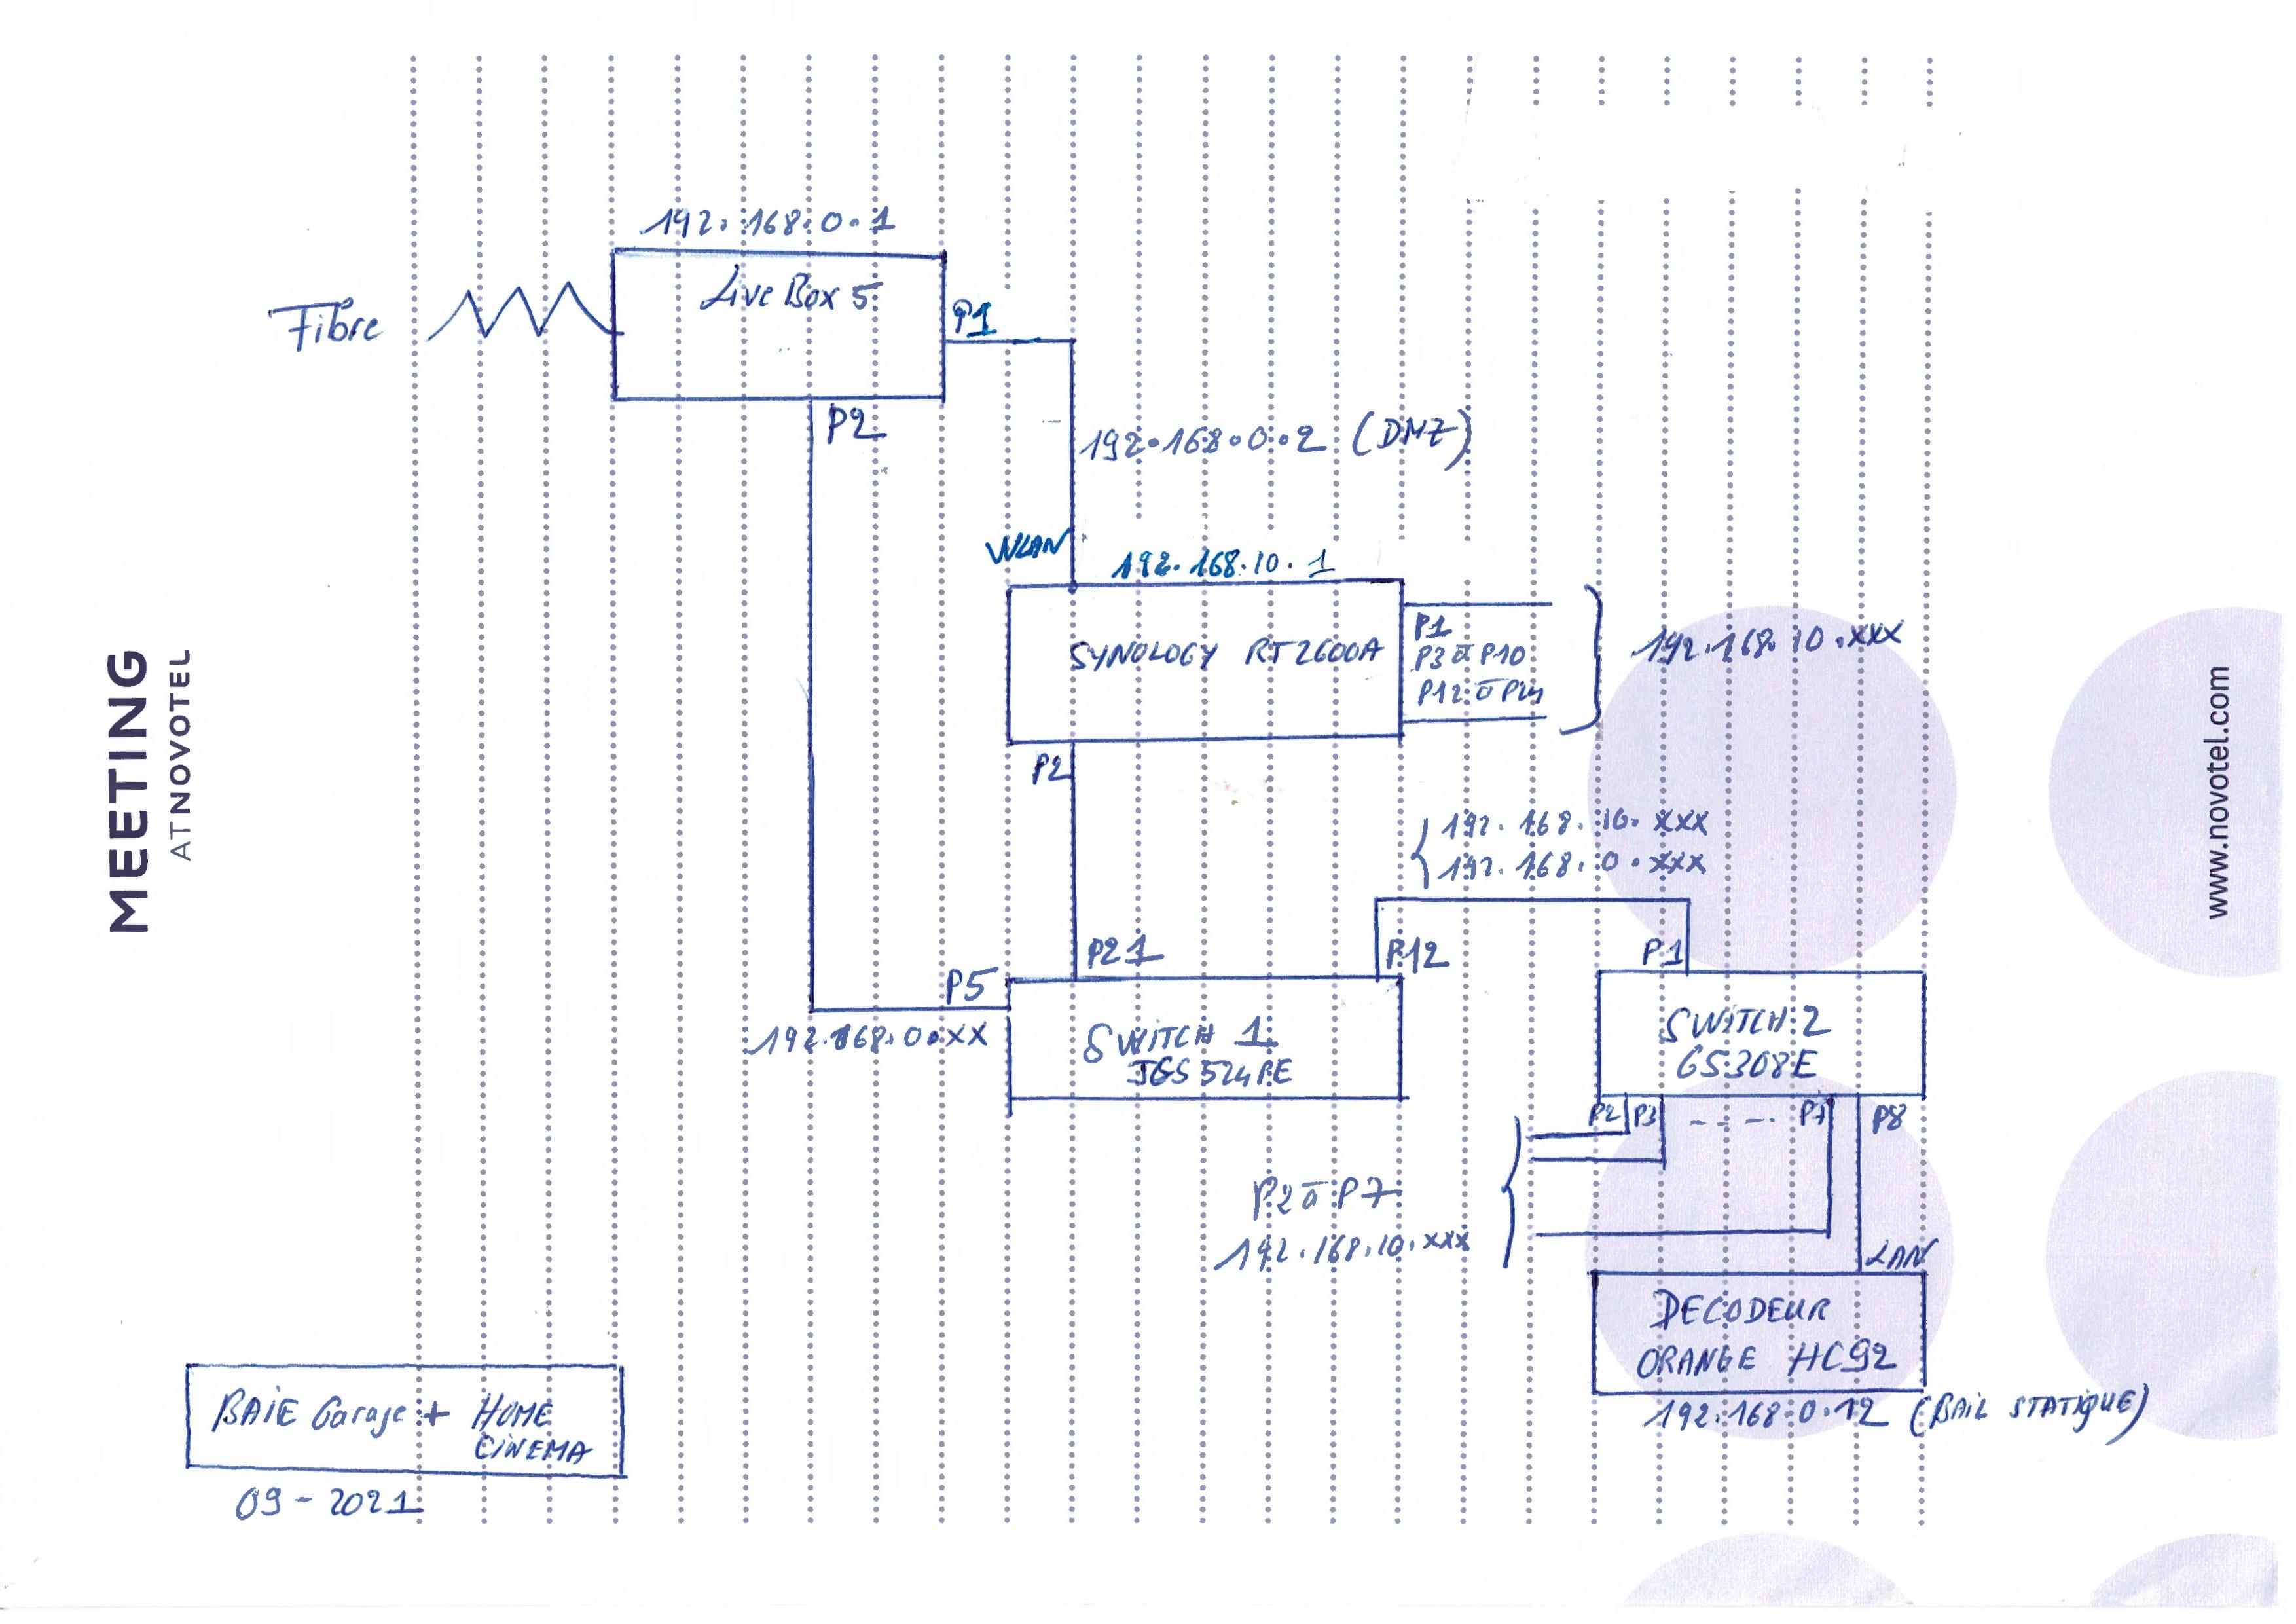 192.168.0.1
Fibre
LiveBox 5
P1
P2
192.168.0.2 (DMZ)
WLAN
192.168.10.1
SYNOLOGY RT2600A
P1
P3 à P10
P12 à P24
192.168.10.xxx
P2
192.168.10.xxx
192.168.0.xxx
P21
P12
P1
P5
192.168.0.xx
SWITCH 1
JGS524PE
SWITCH 2
GS308E
P2 P3 ---- P7 P8
P2 à P7
192.168.10.xxx
LAN
DECODEUR
ORANGE HC92
192.168.0.12 (BAIL STATIQUE)
BAIE Garage + HOME
CINEMA
09-2021
MEETING
ATNOVOTEL
www.novotel.com